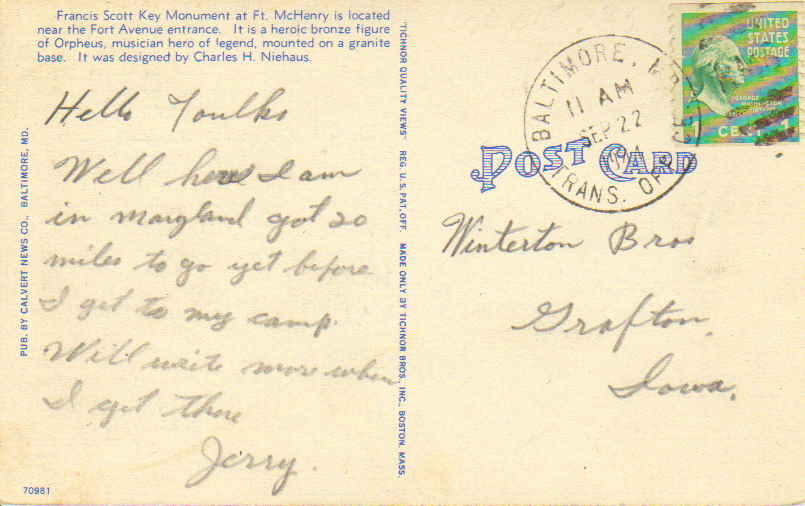 Francis Scott Key Monument at Ft. McHenry is located
near the Fort Avenue entrance. It is a heroic bronze figure
of Orpheus, musician hero of legend, mounted on a granite
base. It was designed by Charles H. Niehaus.
Hello Foulks
Well here I am
in Maryland got 20
miles to go yet before
I get to my camp.
Will write more when
I get there
Jerry.
PUB. BY CALVERT NEWS CO., BALTIMORE, MD.
70981
"TICHNOR QUALITY VIEWS" REG. U. S. PAT. OFF. MADE ONLY BY TICHNOR BROS., INC., BOSTON, MASS.
POST CARD
BALTIMORE, MD.
11 AM
SEP 22
TRANS. OFFICE
UNITED
STATES
POSTAGE
GEORGE
WASHINGTON
1 CENT 1
Winterton Bros
Grafton,
Iowa.